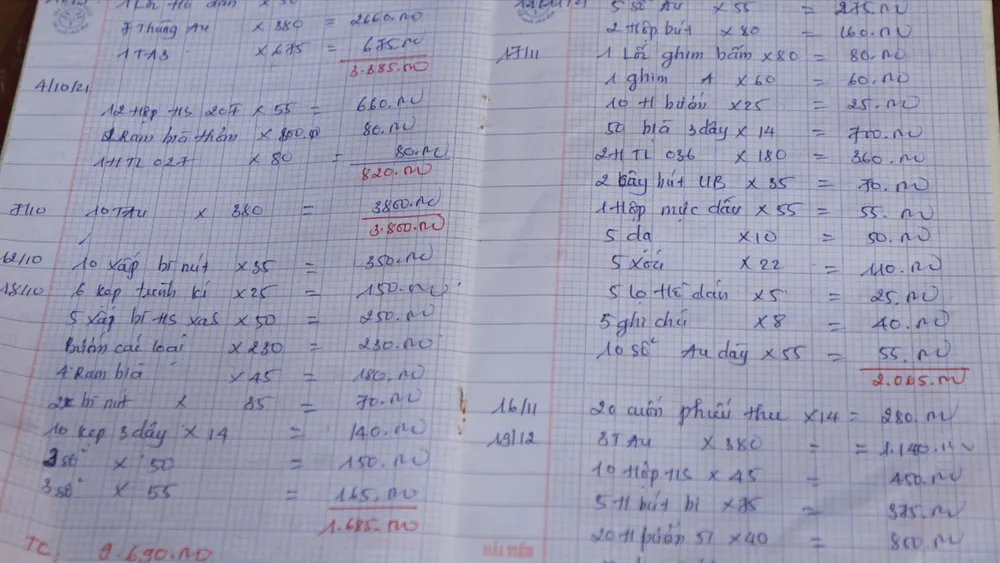 7 Thùng Au × 380 = 2660.000
1TA3 × 675 = 675.000
3.335.000
4/10/21
12 Hộp HS 20F × 55 = 660.000
Ram bìa thơm × 80 = 80.000
1H TL 027 × 80 = 80.000
820.000
7/10 10TAu × 380 = 3800.000
3.800.000
12/10 10 xấp bì nút × 35 = 350.000
18/10 6 kẹp trình kí × 25 = 150.000
5 xấp bì HS × 50 = 250.000
Bướm các loại × 230 = 230.000
4 Ram bìa × 45 = 180.000
2x bì nút × 35 = 70.000
10 kẹp 3 dây × 14 = 140.000
3 sổ × 50 = 150.000
3 sổ × 55 = 165.000
1.685.000
TC: 9.690.000
5 sổ Au × 55 = 275.000
2 Hộp bút × 80 = 160.000
17/11 1 Lố ghim bấm × 80 = 80.000
1 ghim A × 60 = 60.000
10 H bướm × 25 = 25.000
50 bìa 3 dây × 14 = 700.000
2H TL 036 × 180 = 360.000
2 cây bút UB × 35 = 70.000
1 Hộp mực dấu × 55 = 55.000
5 dạ × 10 = 50.000
5 xóa × 22 = 110.000
5 lọ Hồ dán × 5 = 25.000
5 ghi chú × 8 = 40.000
10 sổ Au dày × 55 = 55.000
2.065.000
16/11 20 cuốn phiếu thu × 14 = 280.000
19/12 3TAu × 380 = = 1.140.000
10 Hộp HS × 45 = 450.000
5H bút bi × 75 = 375.000
20H bướm 51 × 40 = 800.000
HẢI TIẾN